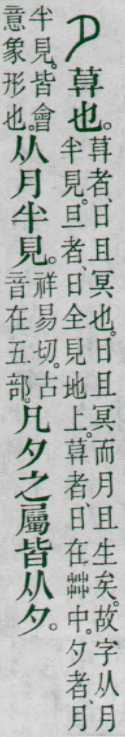 夕 𦱤也。𦱤者、日且冥也。日且冥而月且生矣。故字从月半見。旦者、日全見地上。𦱤者、日在茻中。夕者、月
半見。皆會意象形也。从月半見。祥易切。古音在五部。凡夕之屬皆从夕。